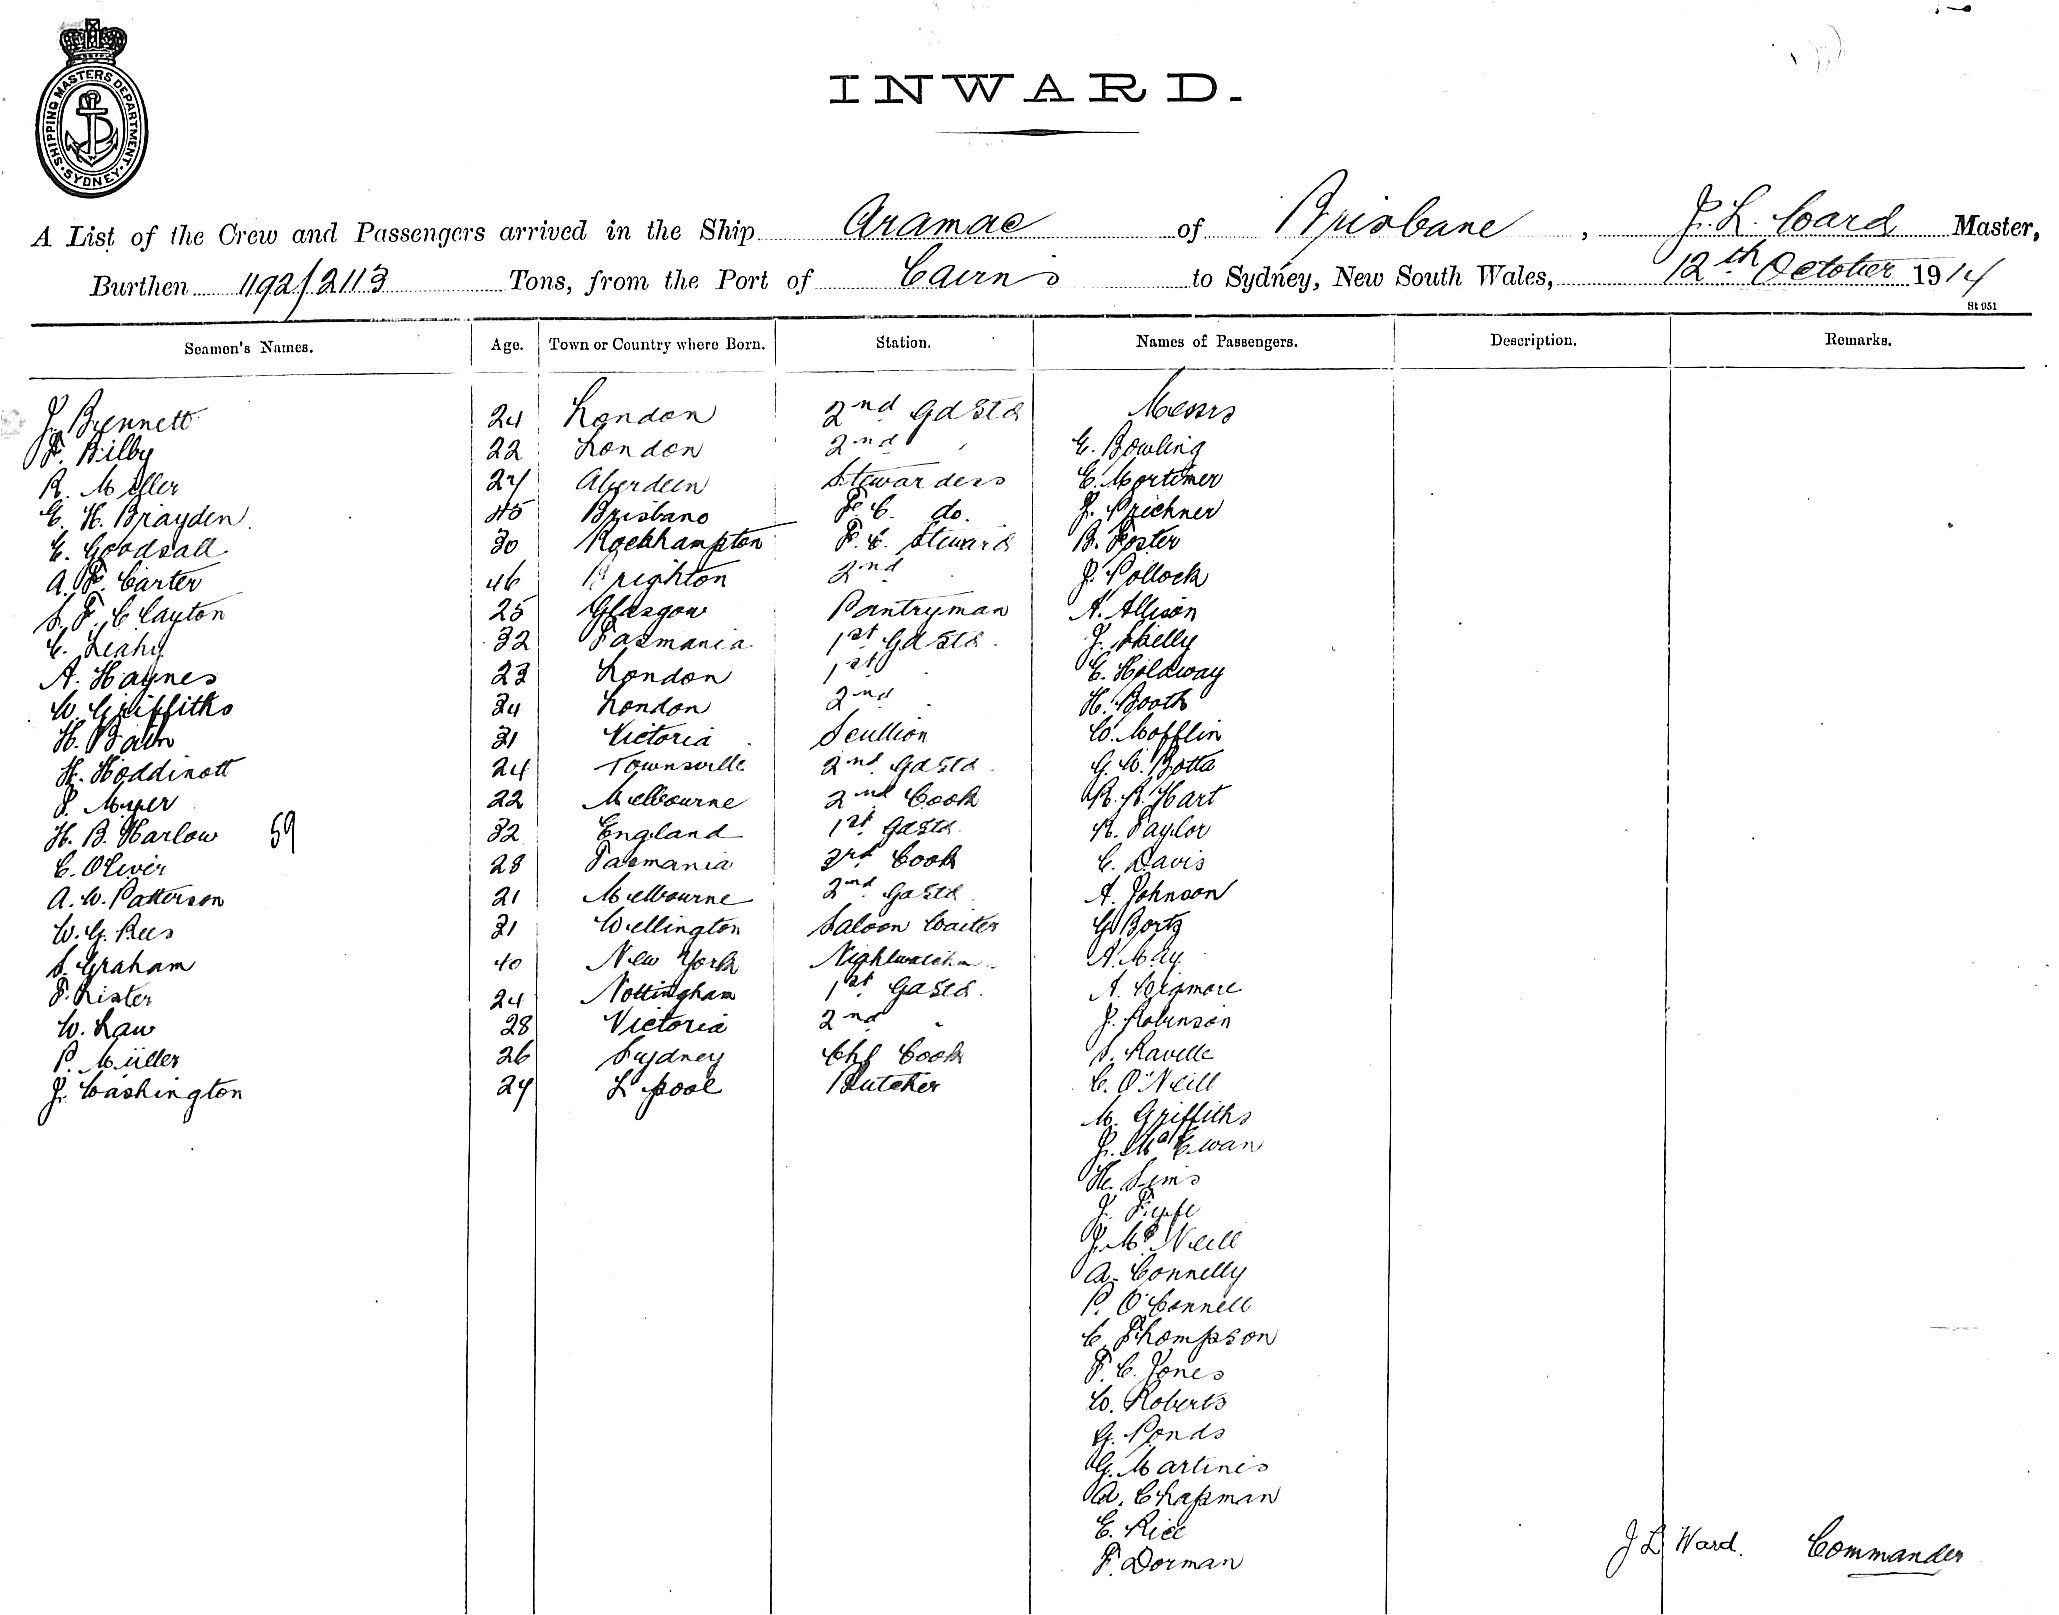 SHIPPING MASTERS DEPARTMENT
SYDNEY
INWARD.
A List of the Crew and Passengers arrived in the Ship Aramac of Brisbane, J. L. Ward Master,
Burthen 1192/2113 Tons, from the Port of Cairns to Sydney, New South Wales, 12th October 1914
St 951
Seamen's Names. Age. Town or Country where Born. Station. Names of Passengers. Description. Remarks.
J. Bennett 24 London 2nd Gd Std Messrs
F. Bilby 22 London 2nd " E. Bowling
R. Miller 24 Aberdeen Stewardess E. Mortimer
E. H. Brayden 45 Brisbane F. C. do. J.
E. Goodsall 30 Rockhampton F. C. Steward B. Foster
A. F. Carter 46 Brighton 2nd " J. Pollock
S. F. Clayton 25 Glasgow Pantryman A. Allison
C. Leahy 32 Tasmania 1st Gd Std. J. Skelly
A. Haynes 23 London 1st " E. Holdway
W. Griffiths 24 London 2nd " H. Booth
H. Bain 31 Victoria Scullion W. Mofflin
H. Hoddinott 24 Townsville 2nd Gd Std G. W. Botta
S. Myer 22 Melbourne 2nd Cook R. R. Hart
H. B. Harlow 59 32 England 1st Gd Std. R. Taylor
C. Oliver 28 Tasmania 3rd Cook C. Davis
A. W. Patterson 21 Melbourne 2nd Gd Std A. Johnson
W. G. Rees 31 Wellington Saloon Waiter G. Bortz
S. Graham 40 New York Nightwatchman A. May
F. Lister 24 Nottingham 1st Gd Std. A. Wigmore
W. Law 28 Victoria 2nd " J. Robinson
P. Müller 26 Sydney Chf Cook S. Ravelle
J. Washington 24 L'pool Butcher C. O'Neill
M. Griffiths
J. McEwan
H. Sims
J. Fyfe
J. McNeill
A. Connelly
P. O'Connell
C. Thompson
F. C. Jones
W. Roberts
G. Ponds
G. Martinis
A. Chapman
E. Rice
F. Dorman
J L Ward. Commander